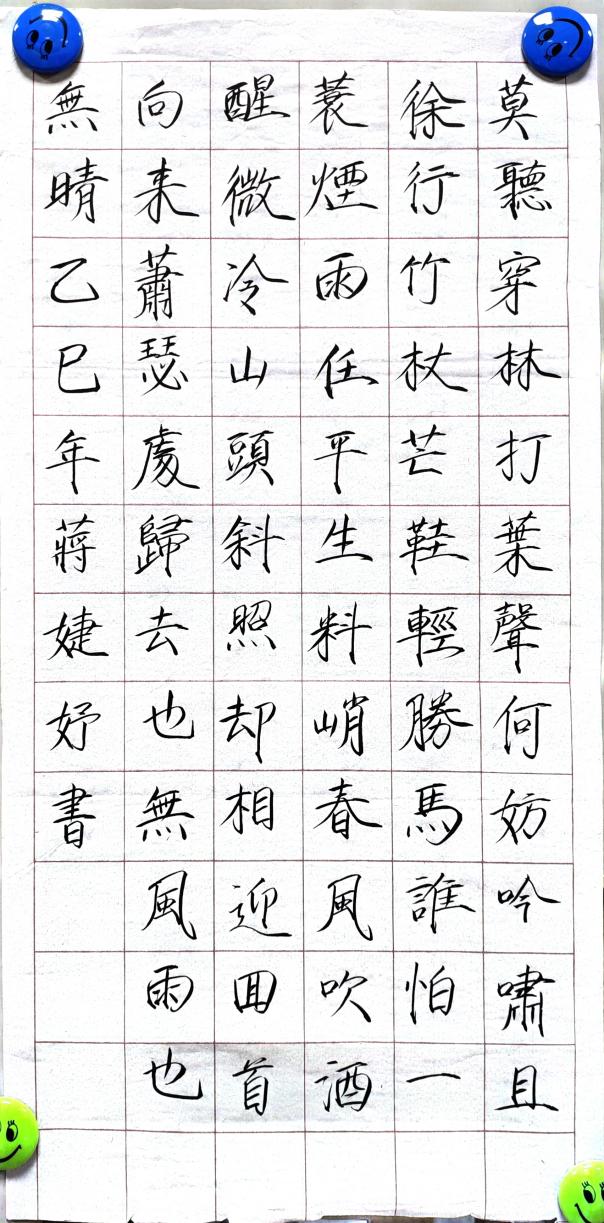 莫聽穿林打葉聲何妨吟嘯且
徐行竹杖芒鞋輕勝馬誰怕一
蓑煙雨任平生料峭春風吹酒
醒微冷山頭斜照却相迎回首
向来蕭瑟處歸去也無風雨也
無晴乙巳年蔣婕妤書